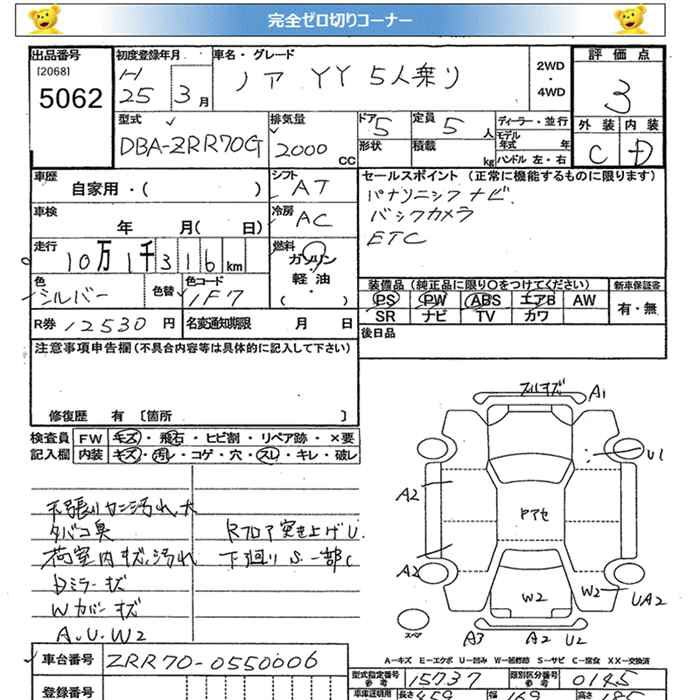 完全ゼロ切りコーナー
出品番号 初度登録年月 車名・グレード 評価点
[2068] H
5062 25 3月 ノア YY 5人乗り 2WD・4WD 3
型式 排気量 ドア 定員 ディーラー・並行 外装 内装
DBA-ZRR70G 2000 CC 5 5人 モデル年式 年 C D
形状 積載 kg ハンドル 左・右
車歴 自家用・( ) シフト AT セールスポイント (正常に機能するものに限ります)
パナソニックナビ
車検 年 月( 日) 冷房 AC バックカメラ
ETC
走行 10万1千316km 燃料 ガソリン
軽油・( )
色 シルバー 色替 色コード 1F7
装備品 (純正品に限り○をつけてください) 新車保証書
PS PW ABS エアB AW 有・無
SR ナビ TV カワ
R券 12530円 名変通知期限 月 日 後日品
注意事項申告欄(不具合内容等は具体的に記入して下さい)
修復歴 有〔箇所 〕
検査員 FW キズ・飛石・ヒビ割・リペア跡・×要
記入欄 内装 キズ・汚れ・コゲ・穴・スレ・キレ・破レ
天張りカニ汚れ大
タバコ臭 Rフロア突き上げU
荷室内キズ、汚れ 下廻りS一部C
Dミラーキズ
Wカバーキズ
A.U.W2
A1
U1
A2
PアセA2
W2 W2 UA2
スペア A3 A2 U2
A-キズ E-エクボ U-凹み W-補修跡 S-サビ C-腐食 XX-交換済
車台番号 ZRR70-0550006 型式指定番号 参考 15737 類別区分番号 参考 0145
登録番号 車庫証明用 長さ 459 幅 169 高さ 185